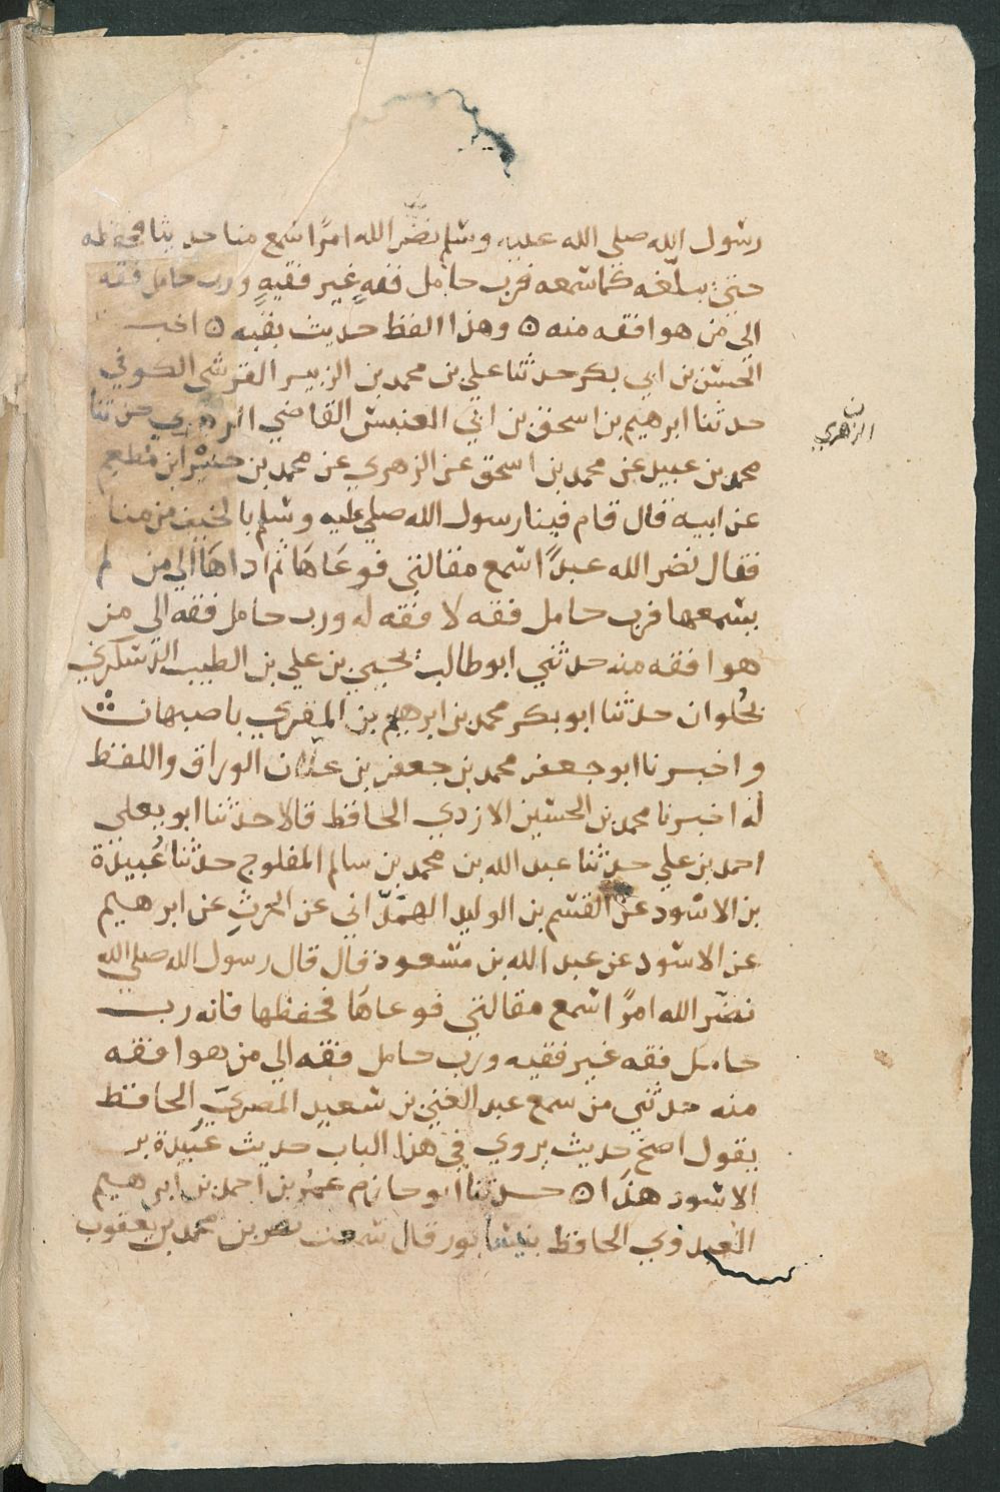 رسول الله صلى الله عليه وسلم نضّر الله امرًا سمع منا حديثا فحفظه
حتى يبلّغه كما سمعه فرب حامل فقهٍ غير فقيهٍ ورب حامل فقه
الى من هو افقه منه ٥ وهذا الفظ حديث بقيه ٥ اخبـ
الحسن بن ابي بكر حدثنا علي بن محمد بن الزبير القرشي الكوفي
حدثنا ابرهيم بن اسحق بن ابي العنبس القاضي الزهري حدثنا
الزهري
محمد بن عبيد عن محمد بن اسحق عن الزهري عن محمد بن جبير ابن مطعم
عن ابيه قال قام فينا رسول الله صلي عليه وسلم بالخيف من منا
فقال نضر الله عبدًا سمع مقالتي فوعَاهَا ثم اداهَا الي من لم
يسمعها فرب حامل فقه لا فقه له ورب حامل فقه الى من
هو افقه منه حدثني ابو طالب يحيي بن علي بن الطيب الدسكري
بحُلوان حدثنا ابو بكر محمد بن ابرهيم بن المقري باصبهان
واخبرنا ابو جعفر محمد بن جعفر بن علان الوراق واللفظ
له اخبرنا محمد بن الحسين الازدي الحافظ قالا حدثنا ابو يعلي
احمد بن علي حدثنا عبد الله بن محمد بن سالم المفلوج حدثنا عُبيدة
بن الاسود عن القسم بن الوليد الهمداني عن الحرث عن ابرهيم
عن الاسود عن عبد الله بن مسعود قال قال رسول الله صلى الله
نضّر الله امرًا سمع مقالتي فوعاهَا فحفظها فانه رب
حامل فقه غير فقيه ورب حامل فقه الي من هو افقه
منه حدثني من سمع عبد الغني بن سعيدٍ المصريّ الحافظ
يقول اصح حديث يروي في هذا الباب حديث عُبيدة بن
الاسود هذا ٥ حدثنا ابو حازم عمر بن احمد بن ابرهيم
العبدوي الحافظ بنيسابور قال سمعت نصر بن محمد بن يعقوب